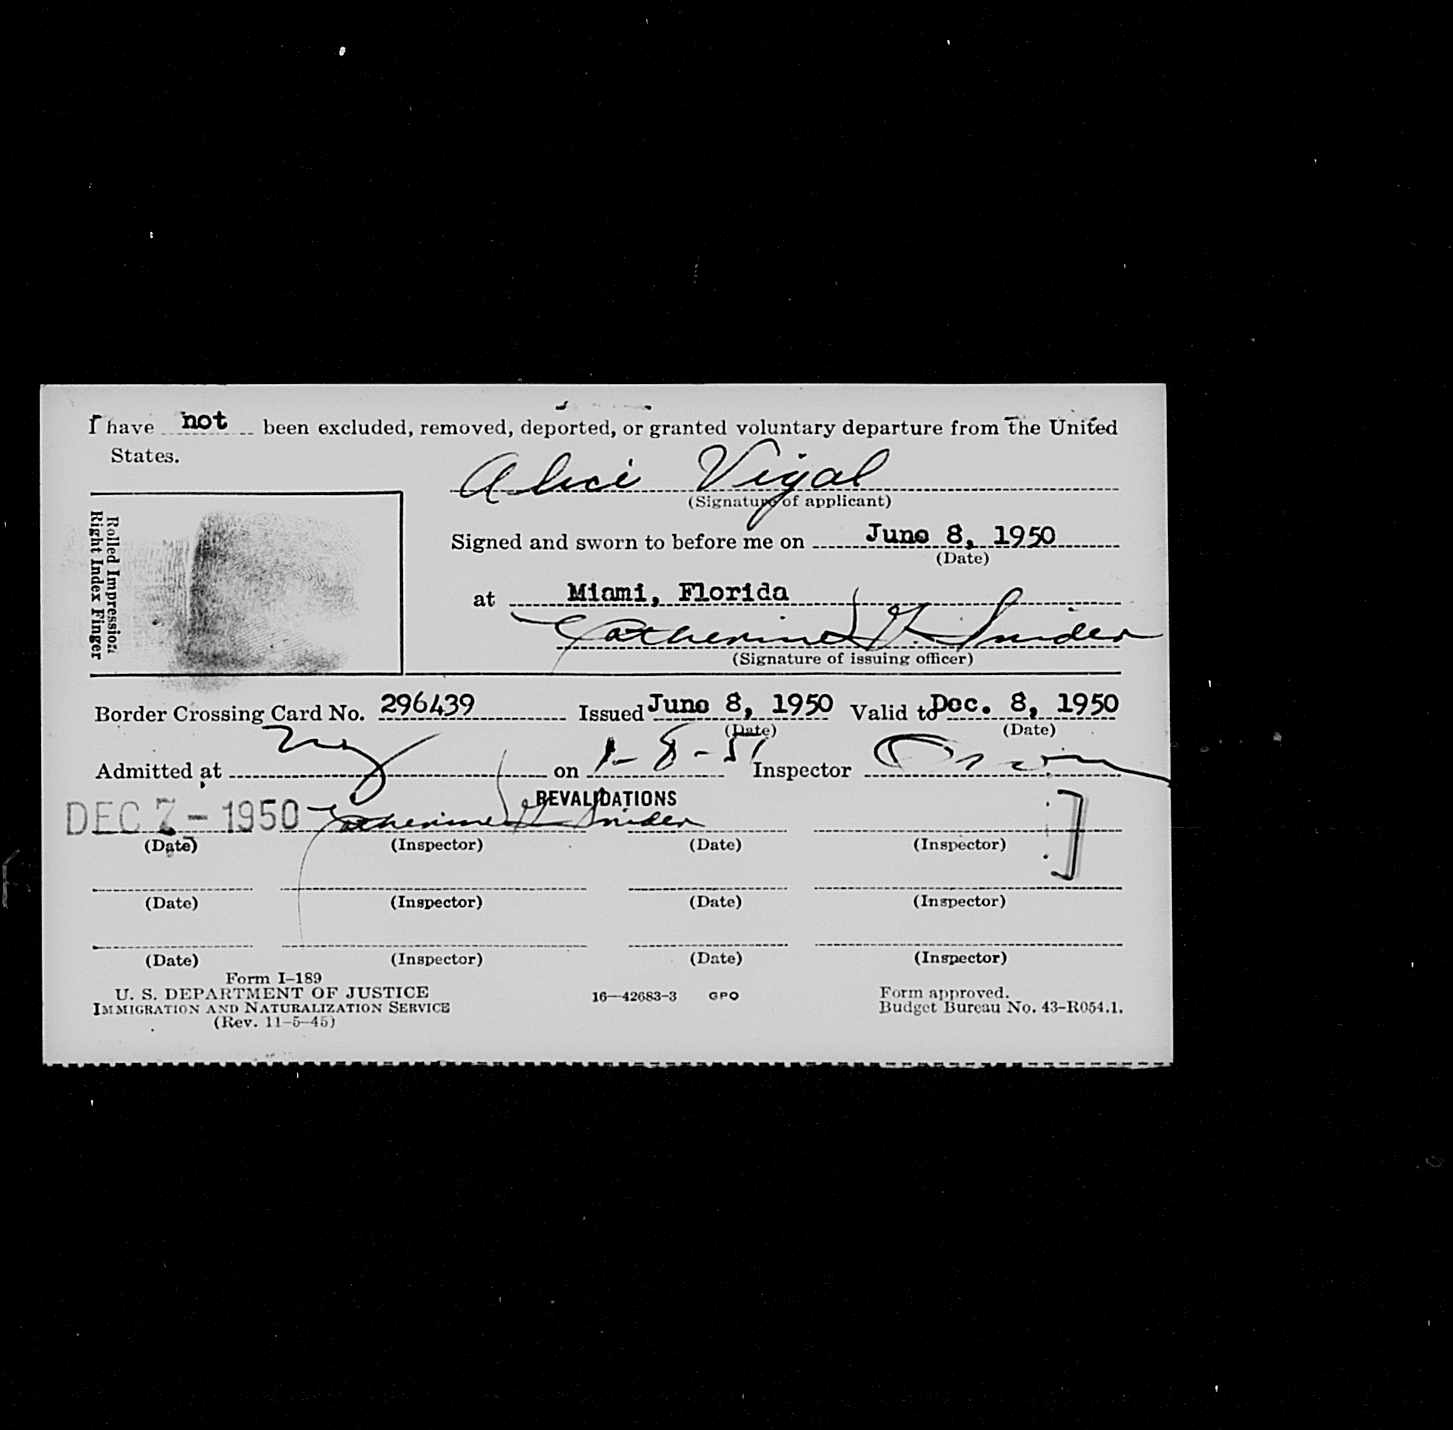 I have not been excluded, removed, deported, or granted voluntary departure from the United
States.
Alice Vigal
(Signature of applicant)
Rolled Impression
Right Index Finger
Signed and sworn to before me on June 8, 1950
(Date)
at Miami, Florida
Catherine G. Snider
(Signature of issuing officer)
Border Crossing Card No. 296439 Issued June 8, 1950 Valid to Dec. 8, 1950
(Date) (Date)
Admitted at on 1-8-51 Inspector
REVALIDATIONS
DEC 7 - 1950 Catherine G Snider
(Date) (Inspector) (Date) (Inspector)
(Date) (Inspector) (Date) (Inspector)
(Date) (Inspector) (Date) (Inspector)
Form I-189
U. S. DEPARTMENT OF JUSTICE
IMMIGRATION AND NATURALIZATION SERVICE
(Rev. 11-5-45)
16—42683-3 GPO
Form approved.
Budget Bureau No. 43-R054.1.